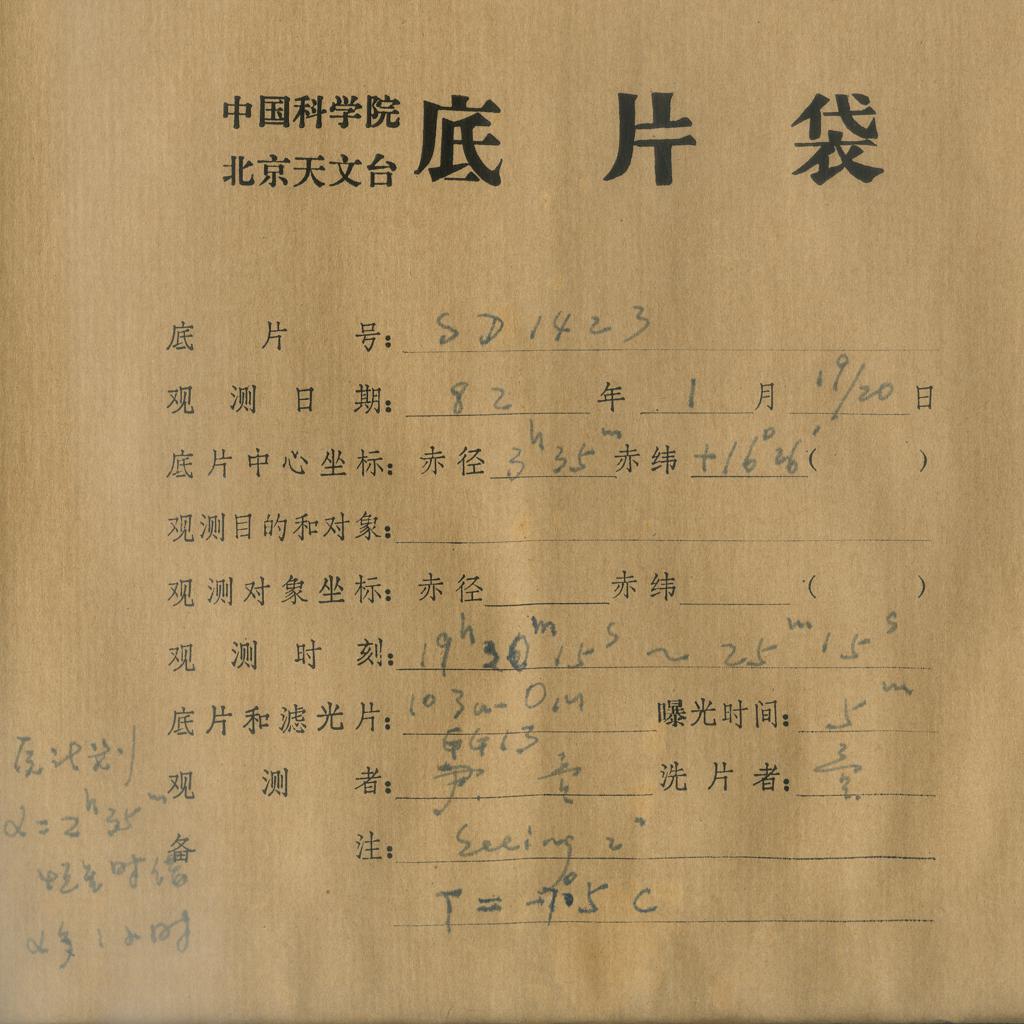 中国科学院
北京天文台 底片袋
底片号: SD 1423
观测日期: 82 年 1 月 19/20 日
底片中心坐标: 赤径 3h35m 赤纬 +16°26′ ( )
观测目的和对象:
观测对象坐标: 赤径 赤纬 ( )
观测时刻: 19h30m15s ~ 25m15s
底片和滤光片: 103a-O 曝光时间: 5m
GG13
观测者: 洗片者:
备注: Seeing 2″
T = 7°5 C
原计划
α=2h35m
恒星时错
α多1小时